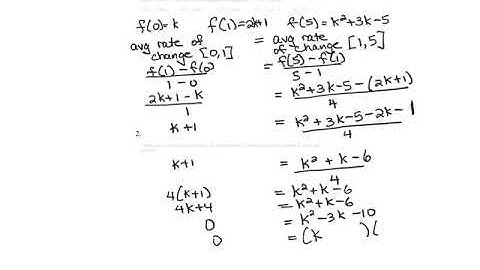 f(0)=k f(1)=2k+1 f(5)=k²+3k-5
avg rate of change [0,1] = avg rate of change [1,5]
f(1)-f(0) / 1-0 = f(5)-f(1) / 5-1
2k+1-k / 1 = k²+3k-5-(2k+1) / 4
k+1 = k²+3k-5-2k-1 / 4
2.
k+1 = k²+k-6 / 4
4(k+1) = k²+k-6
4k+4 = k²+k-6
0 = k²-3k-10
0 = (k )(